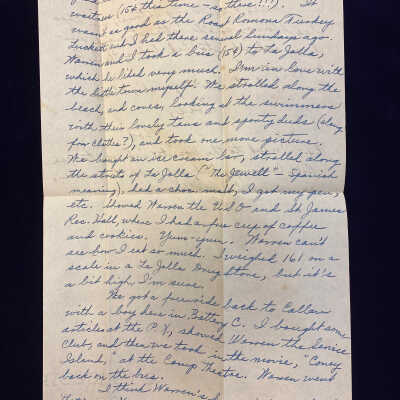 waitress (15¢ this time – so there!!?). It
wasn't as good as the Roast Romona Turkey
Luckett and I had there several Sundays ago.
Warren and I took a bus (15¢) to La Jolla,
which he liked very much. I'm in love with
the little town myself! We strolled along the
beach, and coves, looking at the swimmers
with their lovely tans and sporty duds (
few clothes?), and took one more picture.
We bought an ice cream bar, strolled along
the streets of La Jolla ("The Jewell" – Spanish
meaning), had a choc. malt, I got my pen,
etc. Showed Warren the USO and St. James
Rec. Hall, where I had a free cup of coffee
and cookies. Yum-yum. Warren can't
see how I eat so much. I weighed 161 on a
scale in a La Jolla Drugstore, but it's
a bit high, I'm sure.
We got a free ride back to Callan
with a boy here in Battery C. I bought some
articles at the P.X, showed Warren the Service
Club, and then we took in the movie, "Coney
Island," at the Camp Theatre. Warren went
back on the bus.
I think Warren's